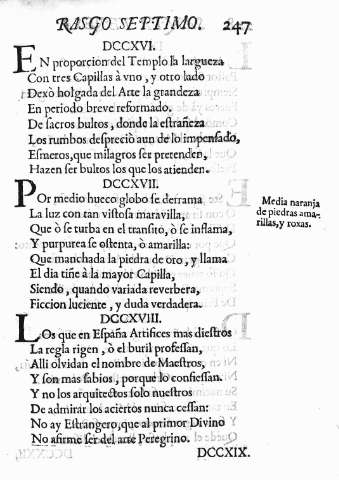 RASGO SEPTIMO. 247
DCCXVI.
EN proporcion del Templo la largueza
Con tres Capillas à vno, y otro lado
Dexò holgada del Arte la grandeza
En periodo breve reformado.
De sacros bultos, donde la estrañeza
Los rumbos despreciò aun de lo impensado,
Esmeros, que milagros ser pretenden,
Hazen ser bultos los que los atienden.
DCCXVII.
POr medio hueco globo se derrama
La luz con tan vistosa maravilla,
Que ò se turba en el transito, ò se inflama,
Y purpurea se ostenta, ò amarilla:
Que manchada la piedra de oro, y llama
El dia tiñe à la mayor Capilla,
Siendo, quando variada reverbera,
Ficcion luciente, y duda verdadera.
Media naranja
de piedras ama-
rillas, y roxas.
DCCXVIII.
LOs que en España Artifices mas diestros
La regla rigen, ò el buril professan,
Alli olvidan el nombre de Maestros,
Y son mas sabios, porque lo confiessan.
Y no los arquitectos solo nuestros
De admirar los aciertos nunca cessan:
No ay Estrangero, que al primor Divino
No afirme ser del arte Peregrino.
DCCXIX.